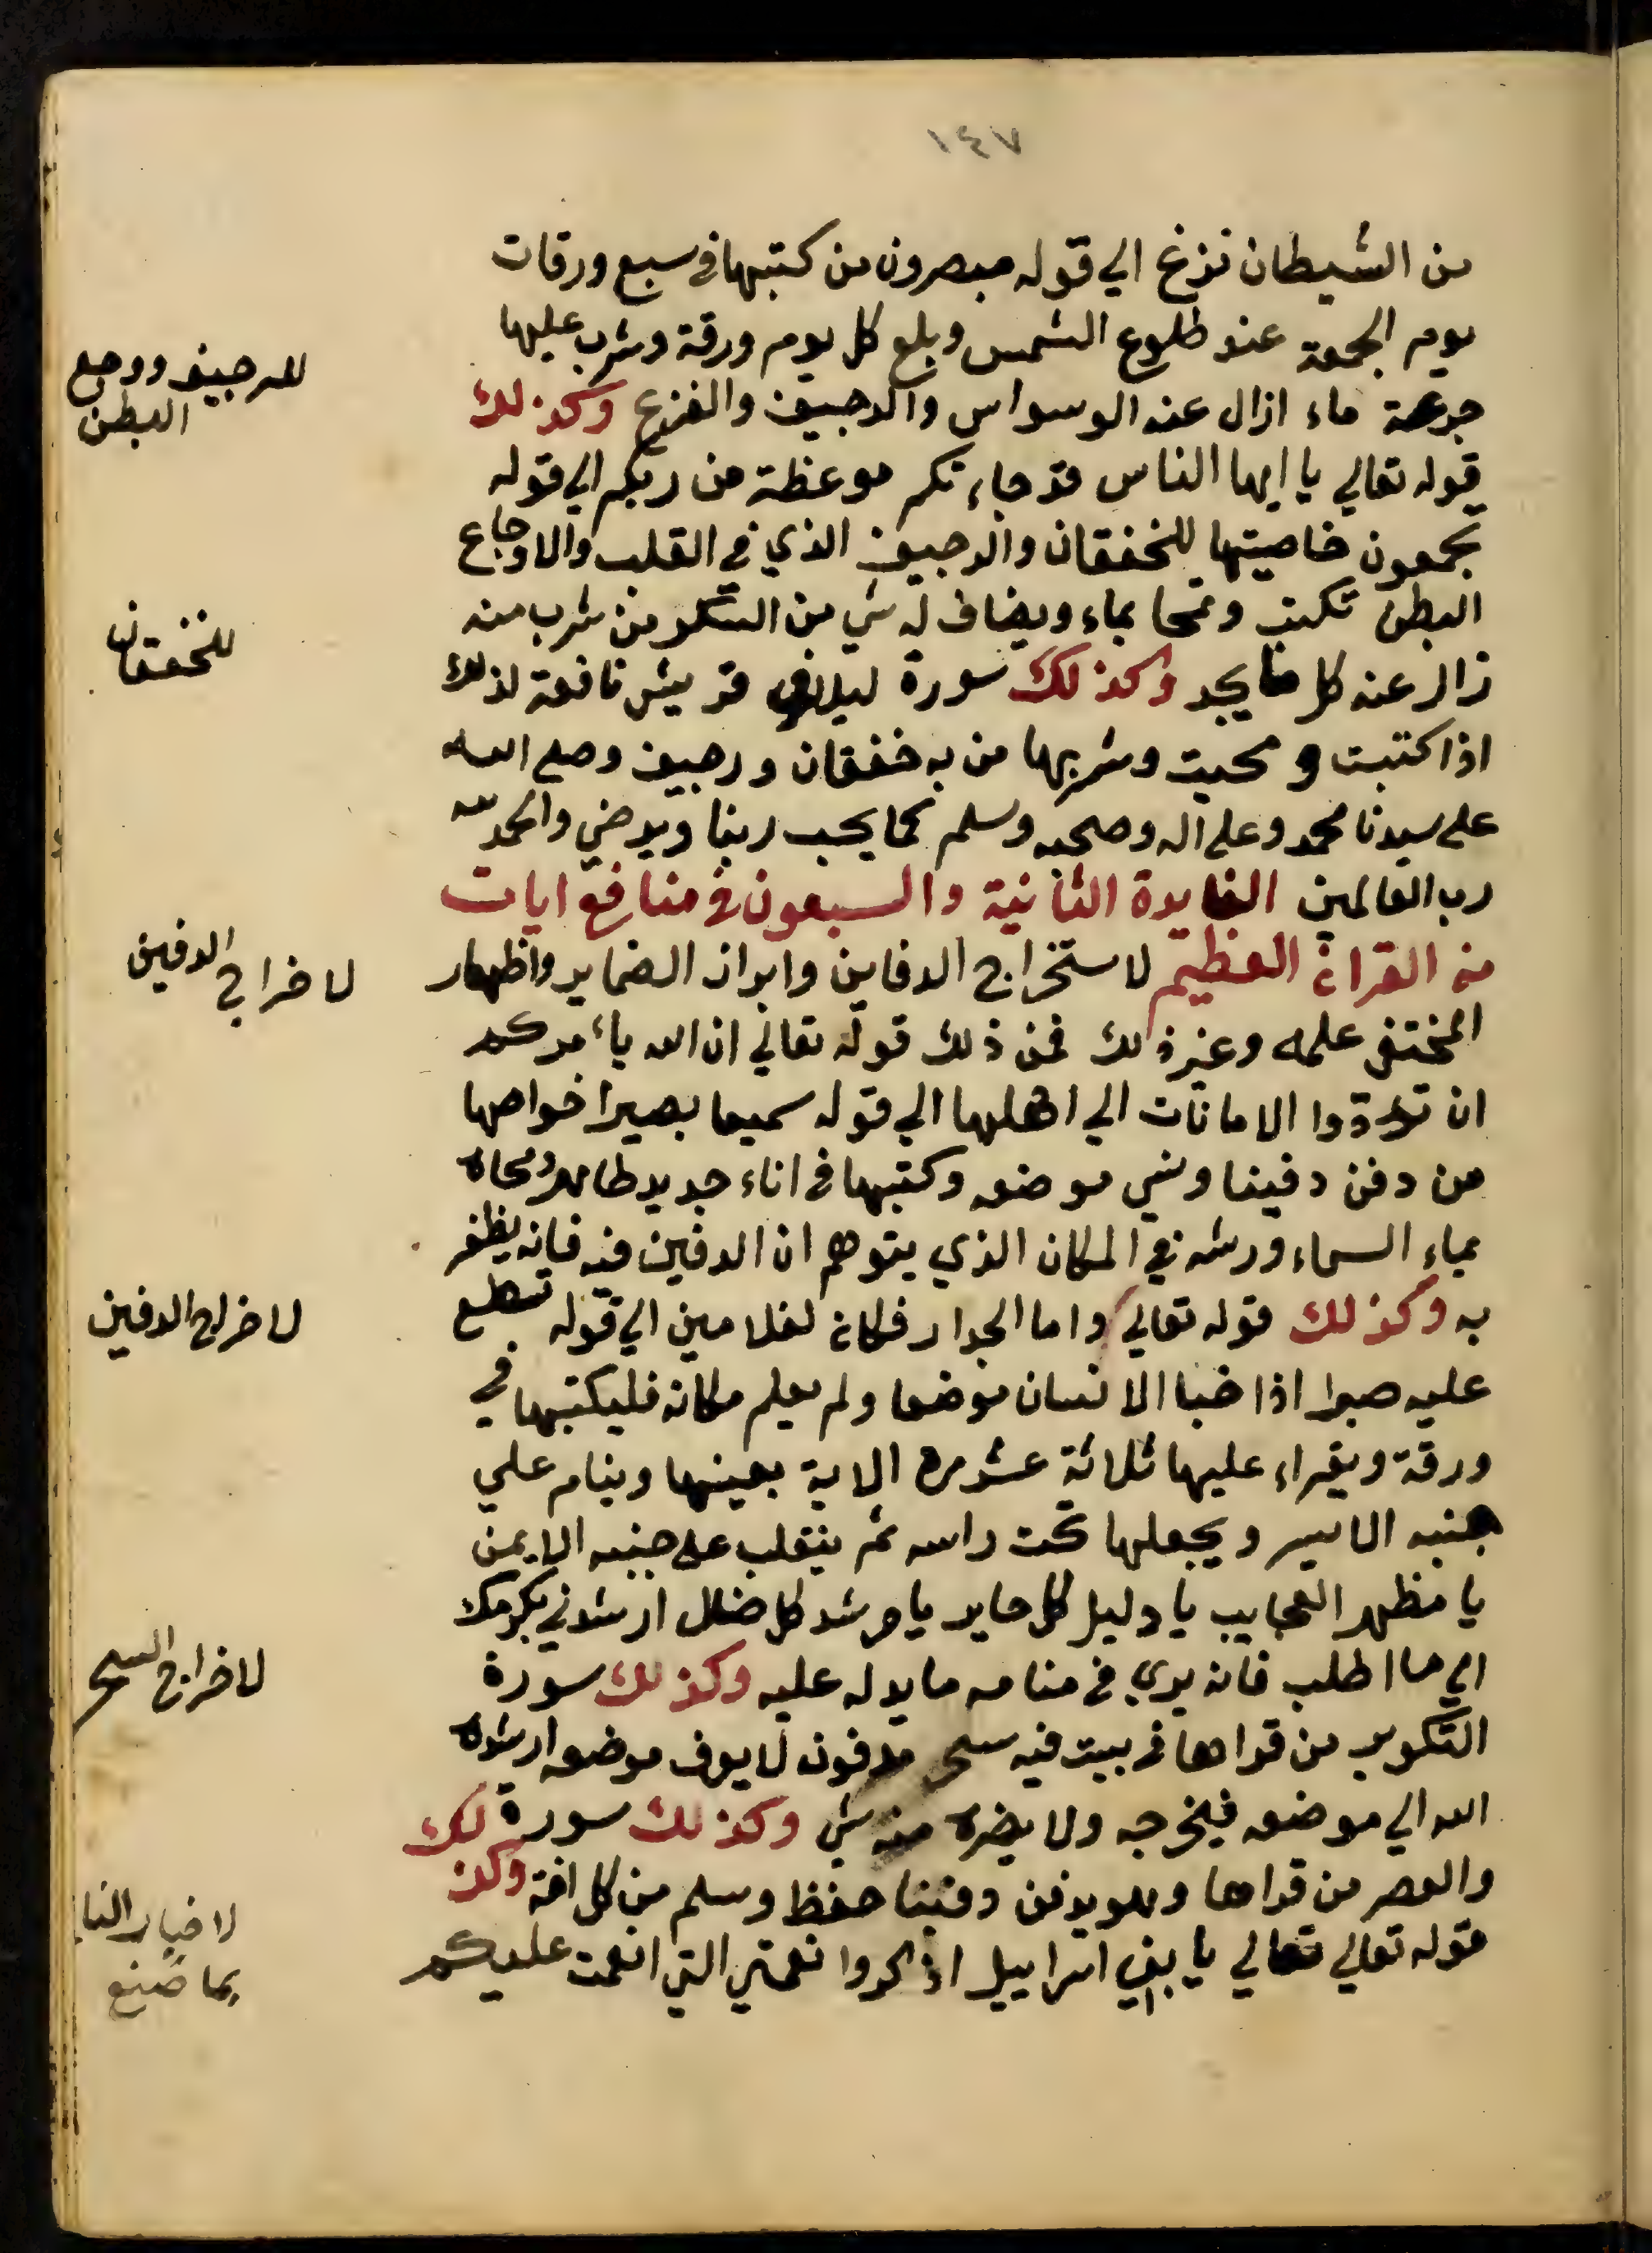 ١٤٧
من الشيطان نزغ الي قوله مبصرون من كتبها في سبع ورقات
يوم الجمعة عند طلوع الشمس وبلع كل يوم ورقة وشرب عليها
جرعة ماء ازال عنه الوسواس والرجيف والفزع وكذلك
قوله تعالي يا ايها الناس قد جاءتكم موعظة من ربكم الي قوله
يجمعون خاصيتها للخفقان والرجيف الذي في القلب والاوجاع
البطن تكتب وتمحا بماء ويضاف له شي من السكر من شرب منه
زال عنه كل ما يجد وكذلك سورة ليلاف قريش نافعة لذلك
اذا كتبت ومحيت وشربها من به خفقان ورجيف وصلي الله
علي سيدنا محمد وعلي اله وصحبه وسلم كما يحب ربنا ويرضي والحمد لله
رب العالمين الفايدة الثانية والسبعون في منافع ايات
من القران العظيم لاستخراج الدفاين وابراز الضماير واظهار
المختفي علمه وغير ذلك فمن ذلك قوله تعالي ان الله يأمركم
ان تؤدوا الامانات الي اهلها الي قوله سميعا بصيرا خواصها
من دفن دفينا ونسي موضعه وكتبها في اناء جديد طاهر ومحاه
بماء السماء ورشه في المكان الذي يتوهم ان الدفين فيه فانه يظفر
به وكذلك قوله تعالي واما الجدار فكان لغلامين الي قوله تسطع
عليه صبرا اذا خبا الانسان موضعا ولم يعلم مكانه فليكتبها في
ورقة ويقراء عليها ثلاثة عشر مره الاية بعينها وينام علي
جنبه الايسر ويجعلها تحت راسه ثم ينقلب علي جنبه الايمن
يا مظهر العجايب يا دليل كل حاير يا مرشد كل ضال ارشدني بكرمك
الي ما اطلب فانه يري في منامه ما يدله عليه وكذلك سورة
التكوير من قراها في بيت فيه سحر مدفون لا يعرف موضعه ارشده
الله الي موضعه فيخرجه ولا يضره منه شي وكذلك سورة
والعصر من قراها وهو يدفن دفينا حفظ وسلم من كل افة وكذلك
قوله تعالي تعالي يا بني اسراييل اذكروا نعمتي التي انعمت عليكم
للرجيف ووجع
البطن
للخفقان
لاخراج الدفين
لاخراج الدفين
لاخراج السحر
لاخبار النا
بما صنع